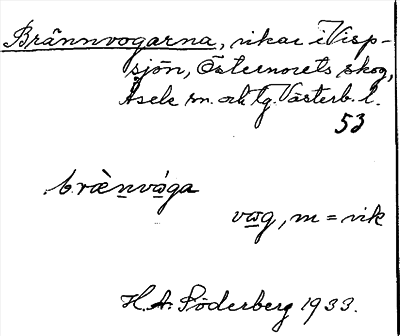 Brännvogarna, vikar i Visp-
sjön, Östernorets skog,
Åsele sn. och tg. Västerb. l.
53
bræ̀n̲vώ̲ga
vω̲g, m = vik
H. A. Söderberg 1933.